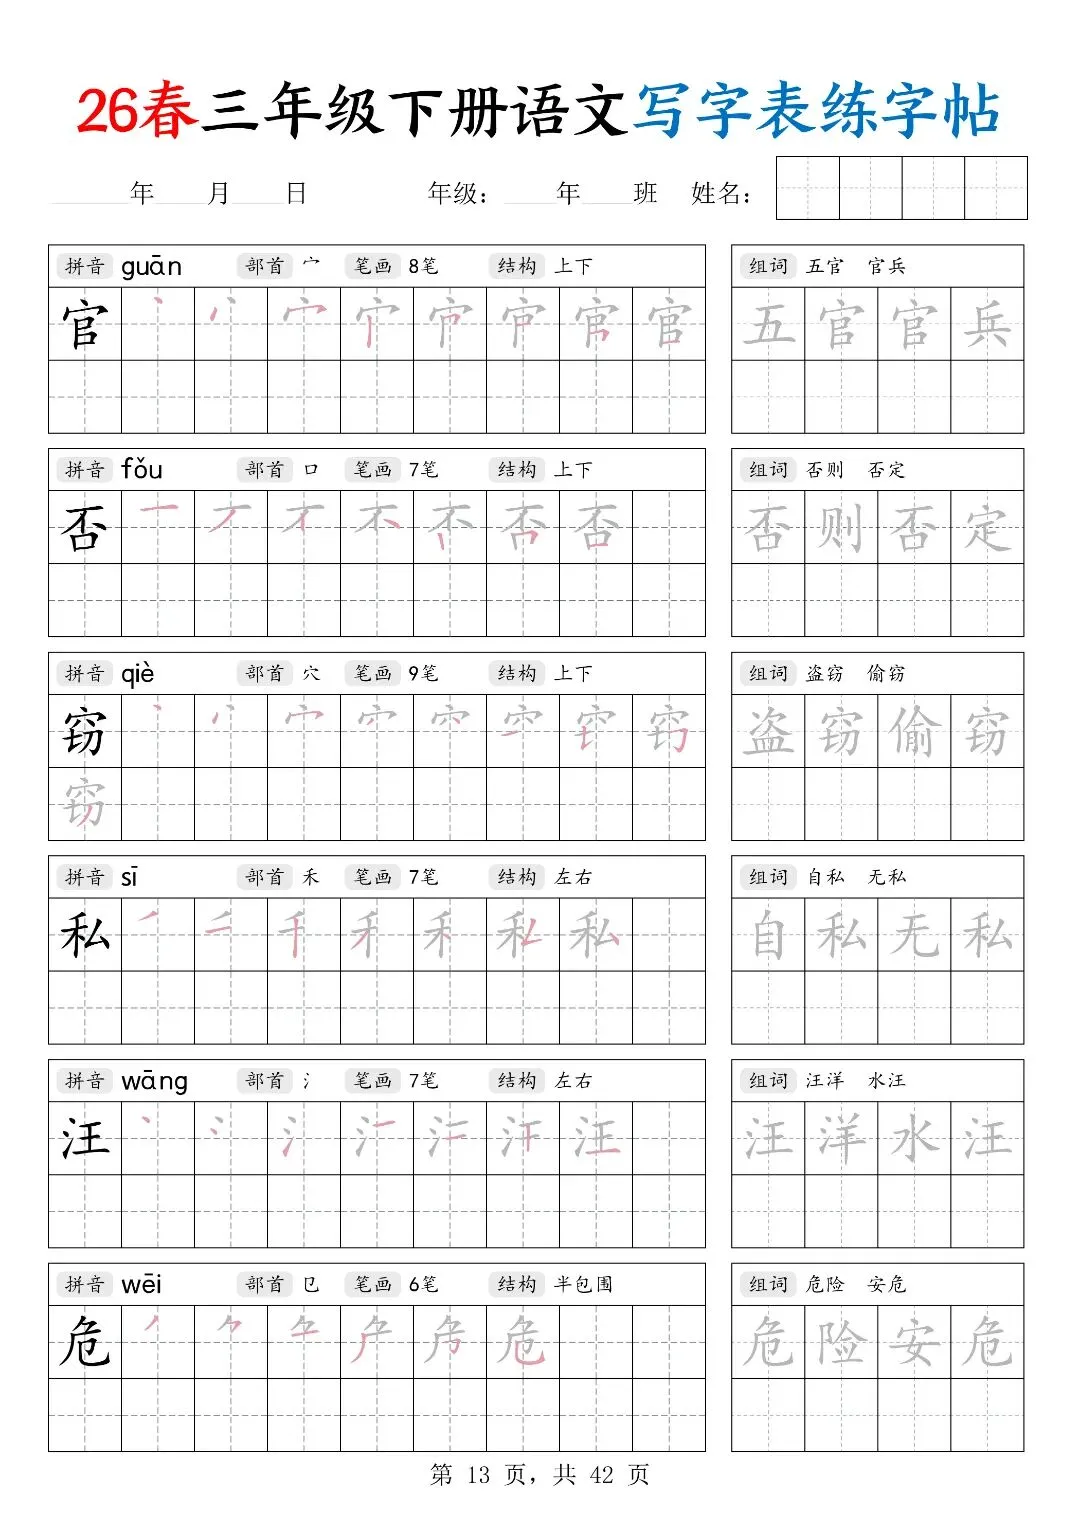 26春三年级下册语文写字表练字帖
年 月 日 年级： 年 班 姓名：
拼音 guān 部首 宀 笔画 8笔 结构 上下 组词 五官 官兵
官 五官官兵
拼音 fǒu 部首 口 笔画 7笔 结构 上下 组词 否则 否定
否 否则否定
拼音 qiè 部首 穴 笔画 9笔 结构 上下 组词 盗窃 偷窃
窃 盗窃偷窃
窃
拼音 sī 部首 禾 笔画 7笔 结构 左右 组词 自私 无私
私 自私无私
拼音 wāng 部首 氵 笔画 7笔 结构 左右 组词 汪洋 水汪
汪 汪洋水汪
拼音 wēi 部首 㔾 笔画 6笔 结构 半包围 组词 危险 安危
危 危险安危
第 13 页，共 42 页